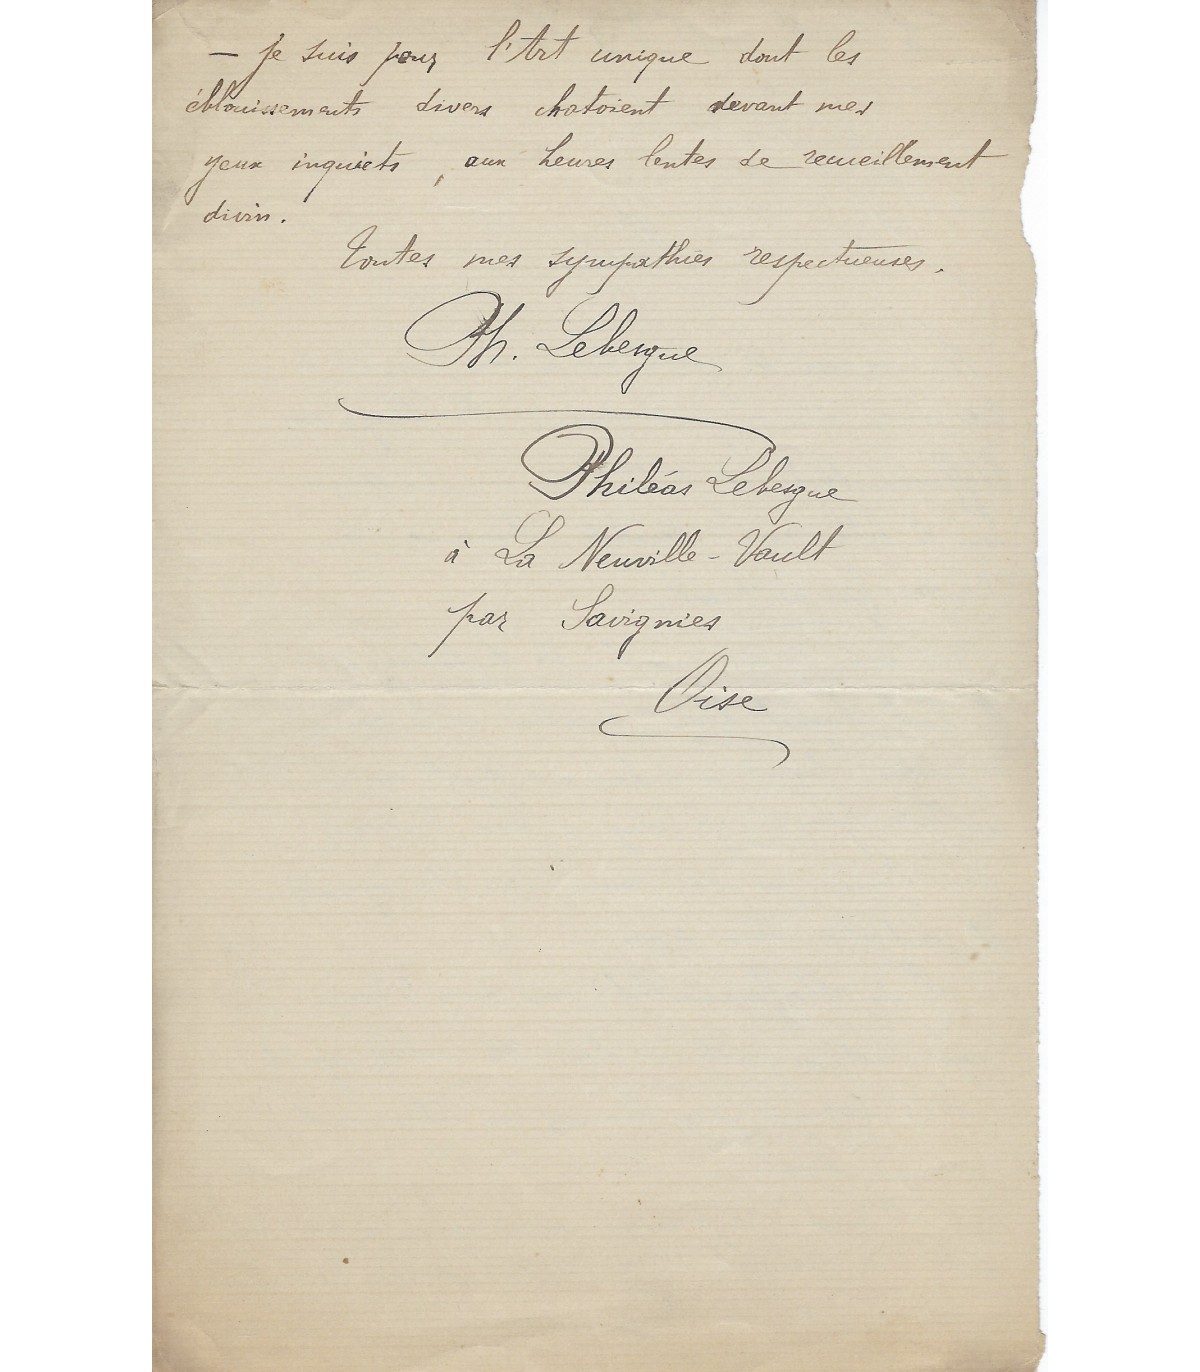 — je suis pour l'Art unique dont les
éblouissements divers chatoient devant mes
yeux inquiets, aux heures lentes de recueillement
divin.
Toutes mes sympathies respectueuses.
Ph. Lebesgue
Philéas Lebesgue
à La Neuville-Vault
par Savignies
Oise